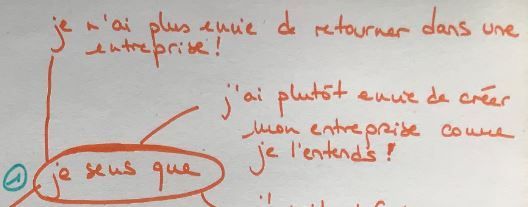 je n'ai plus envie de retourner dans une
entreprise!
j'ai plutôt envie de créer
mon entreprise comme
je l'entends!
1 je sens que